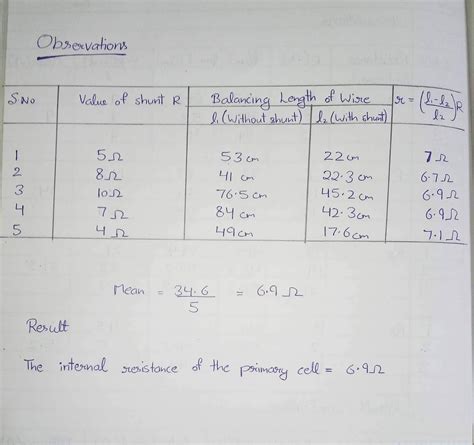 Observations
S No Value of shunt R Balancing Length of Wire r = (l₁-l₂/l₂)R
l₁ (Without shunt) l₂ (With shunt)
1 5Ω 53 cm 22 cm 7Ω
2 8Ω 41 cm 22.3 cm 6.7Ω
3 10Ω 76.5 cm 45.2 cm 6.9Ω
4 7Ω 84 cm 42.3 cm 6.9Ω
5 4Ω 49 cm 17.6 cm 7.1Ω
Mean = 34.6/5 = 6.9Ω
Result
The internal resistance of the primary cell = 6.9Ω